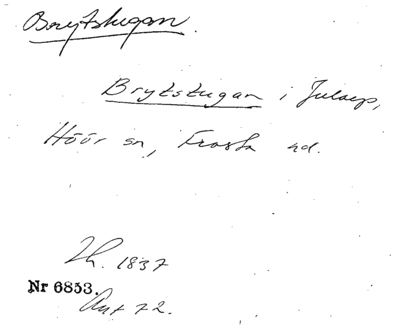 Brytstugan.
Brytstugan i Jularp,
Höör sn, Frosta hd.
Th. 1837
Nr 6853.
Ant 72.